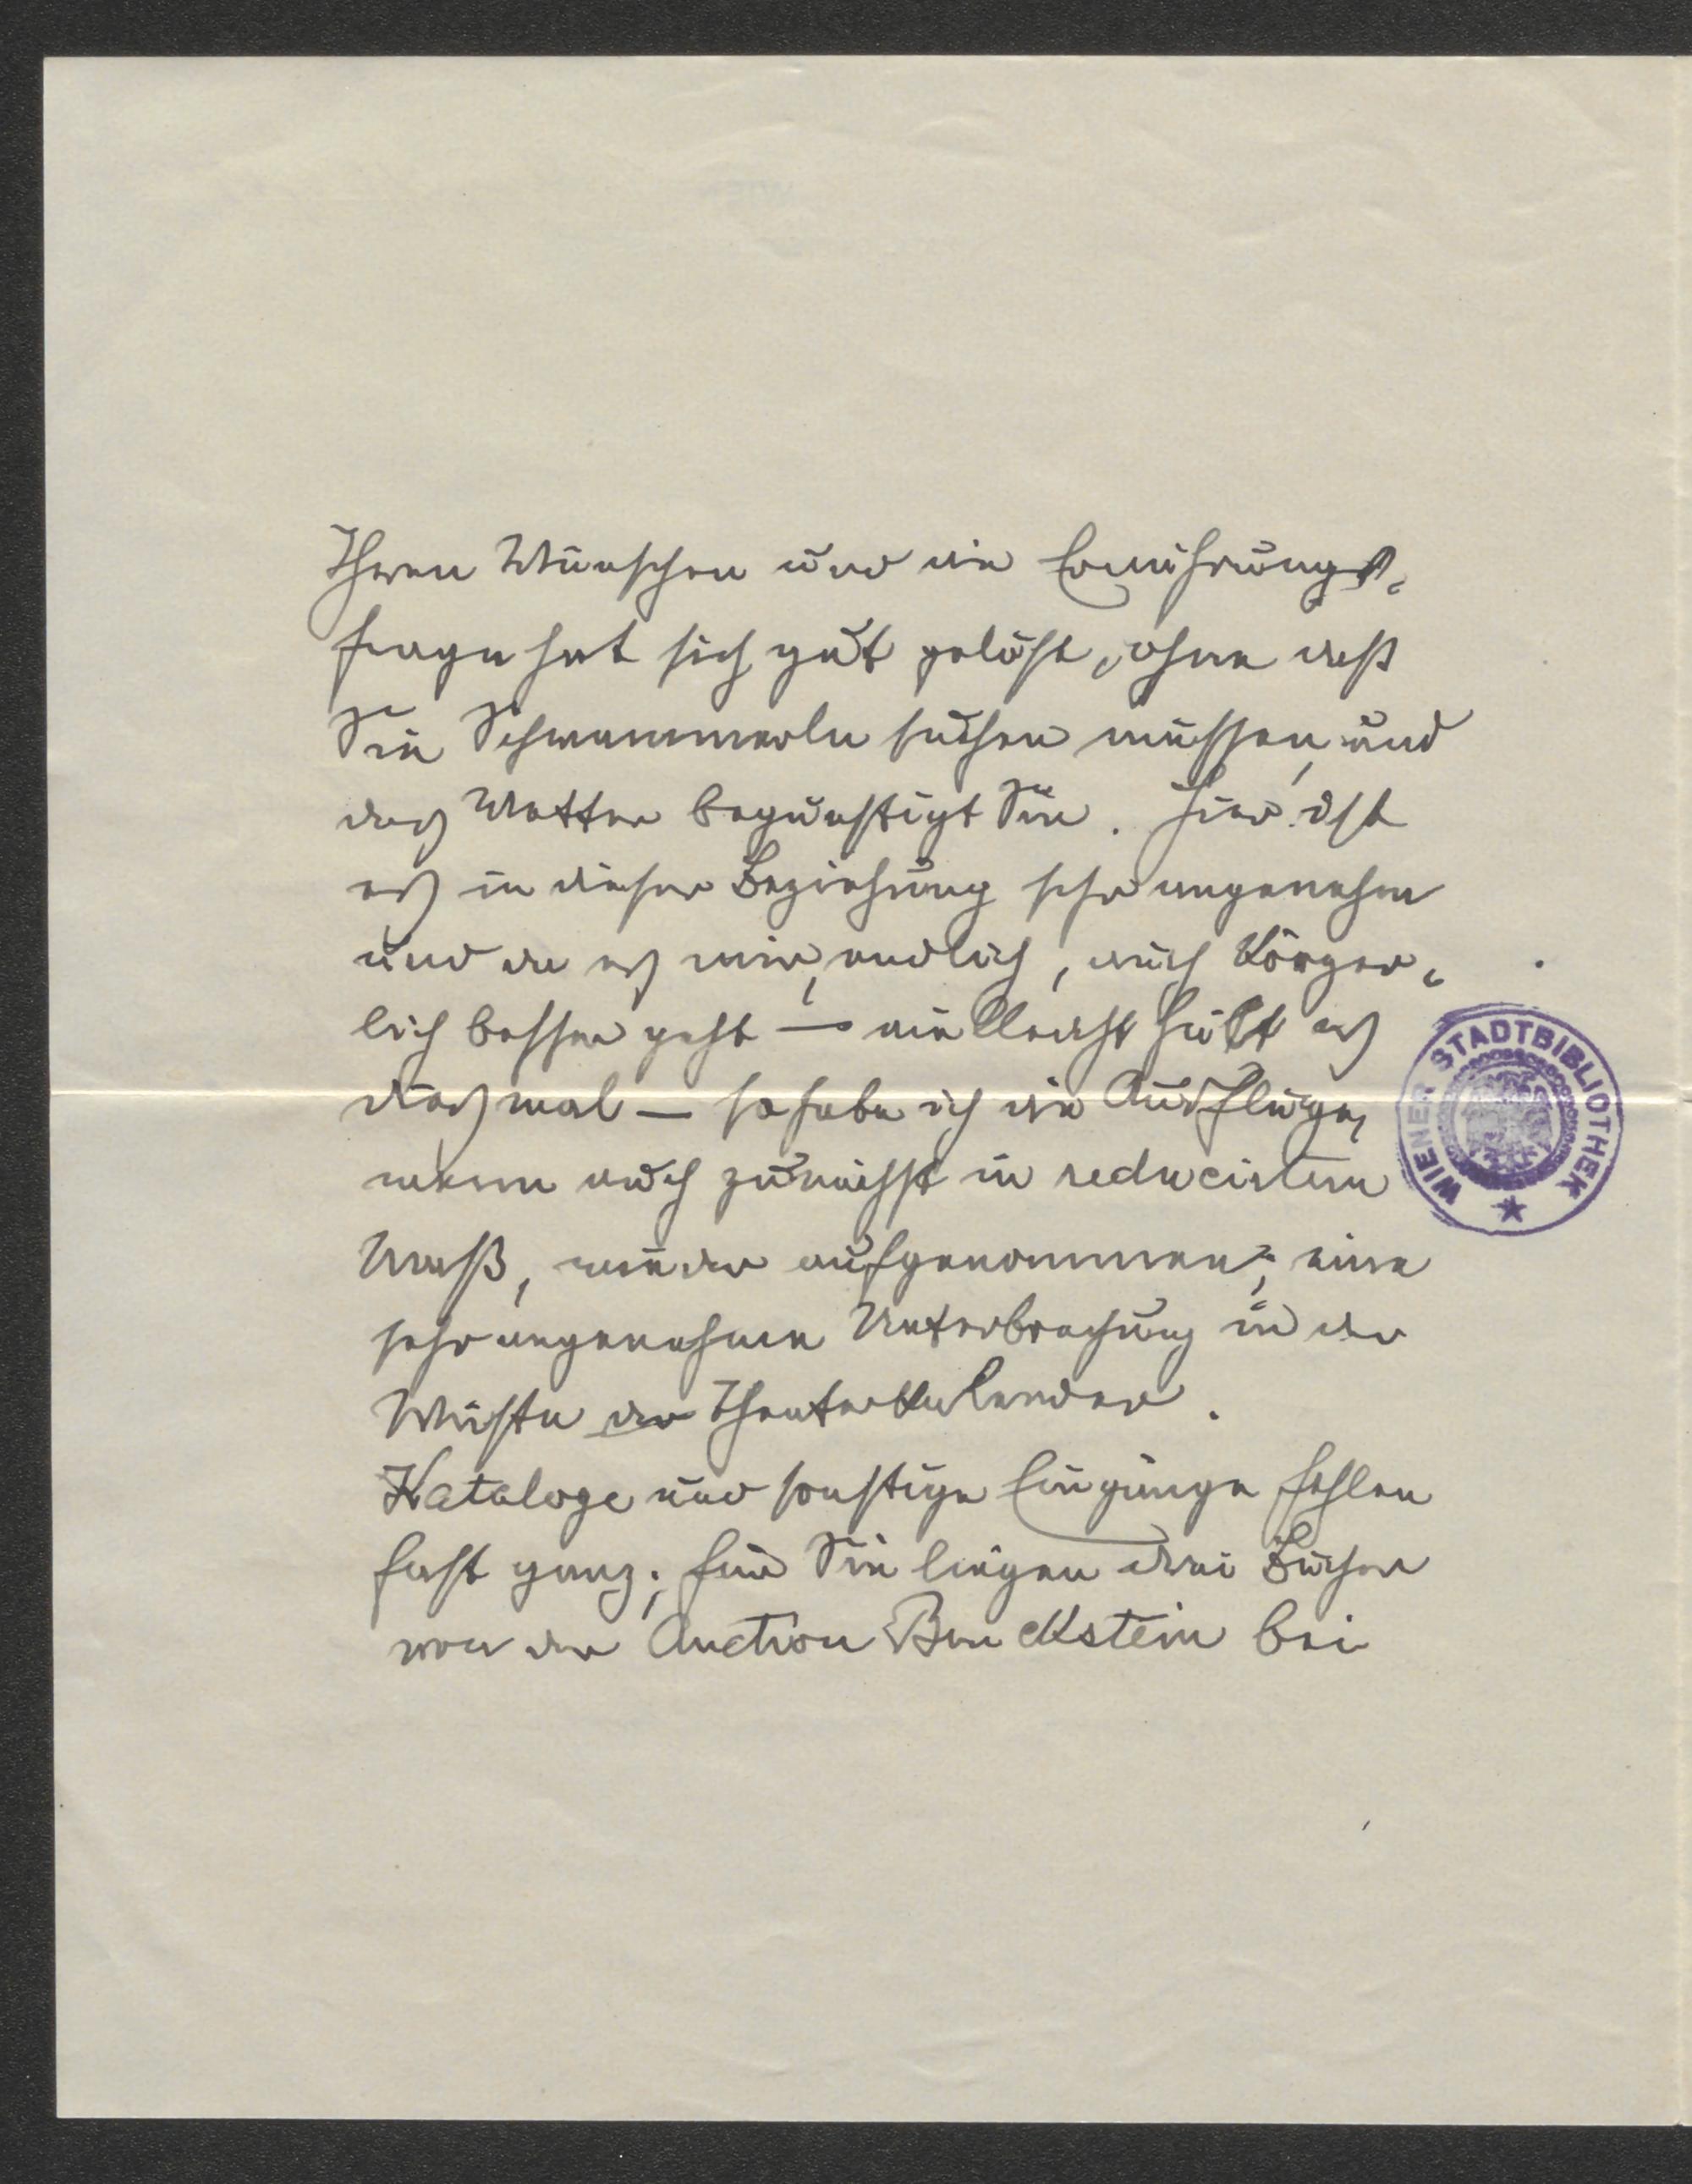 Ihren Wünschen und die Ernährungs-
frage hat sich gut gelöst, ohne daß
Sie Schwammerln suchen müssen, und
das Wetter begünstigt Sie. Hier ist
es in dieser Beziehung sehr angenehm
und da es mir, endlich, auch körper-
lich besser geht — vielleicht hält es
diesmal — so habe ich die Ausflüge,
wenn auch zunächst in reducirtem
Maß, wieder aufgenommen; eine
sehr angenehme Unterbrechung in der
Wüste der Theaterkalender.
Kataloge und sonstige Eingänge fehlen
fast ganz; für Sie liegen drei Bücher
von der Auction Bruckstein bei
WIENER STADTBIBLIOTHEK